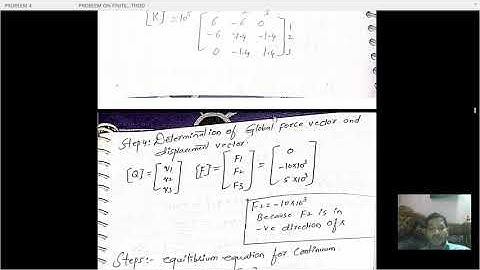 PROBLEM 4 PROBLEM ON FINITE...THOD
[K] = 10⁵ [ 6 -6 0 ] 1
[ -6 7.4 -1.4 ] 2
[ 0 -1.4 1.4 ] 3
Step4: Determination of Global force vector and
displacement vector.
[Q] = [ q1 q2 q3 ] [F] = [ F1 F2 F3 ] = [ 0 -10×10³ 5×10³ ]
F2 = -10×10³
Because F2 is in
-ve direction of x
Step5:- equilibrium equation for Continuum